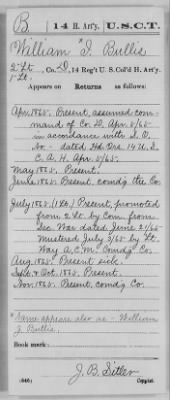 B | 14 H. Art'y. | U.S.C.T.
William *I. Bullis
2" Lt., Co. D, 14 Reg't U. S. Col'd H. Art'y.
1" Lt.
Appears on
Returns as follows:
Apr. 1865. Present, assumed com-
mand of Co. D, Apr. 5/65
in accordance with S. O.
No - dated Hd. Qrs. 14 U. S.
C. A. H. Apr. 5/65.
May 1865. Present.
June 1865. Present, comd'g the Co.
July 1865. (1 Lt.) Present, promoted
from 2 Lt. by Com. from
Sec. War dated June 21/65
Mustered July 3/65 by Lt.
Way A. C. M. Comd'g Co.
Aug. 1865. Present sick.
Sept. & Oct. 1865. Present.
Nov. 1865. Present, comd'g Co.
*Name appears also as - William
J. Bullis.
Book mark:
(646)
J. B. Sitler
Copyist.